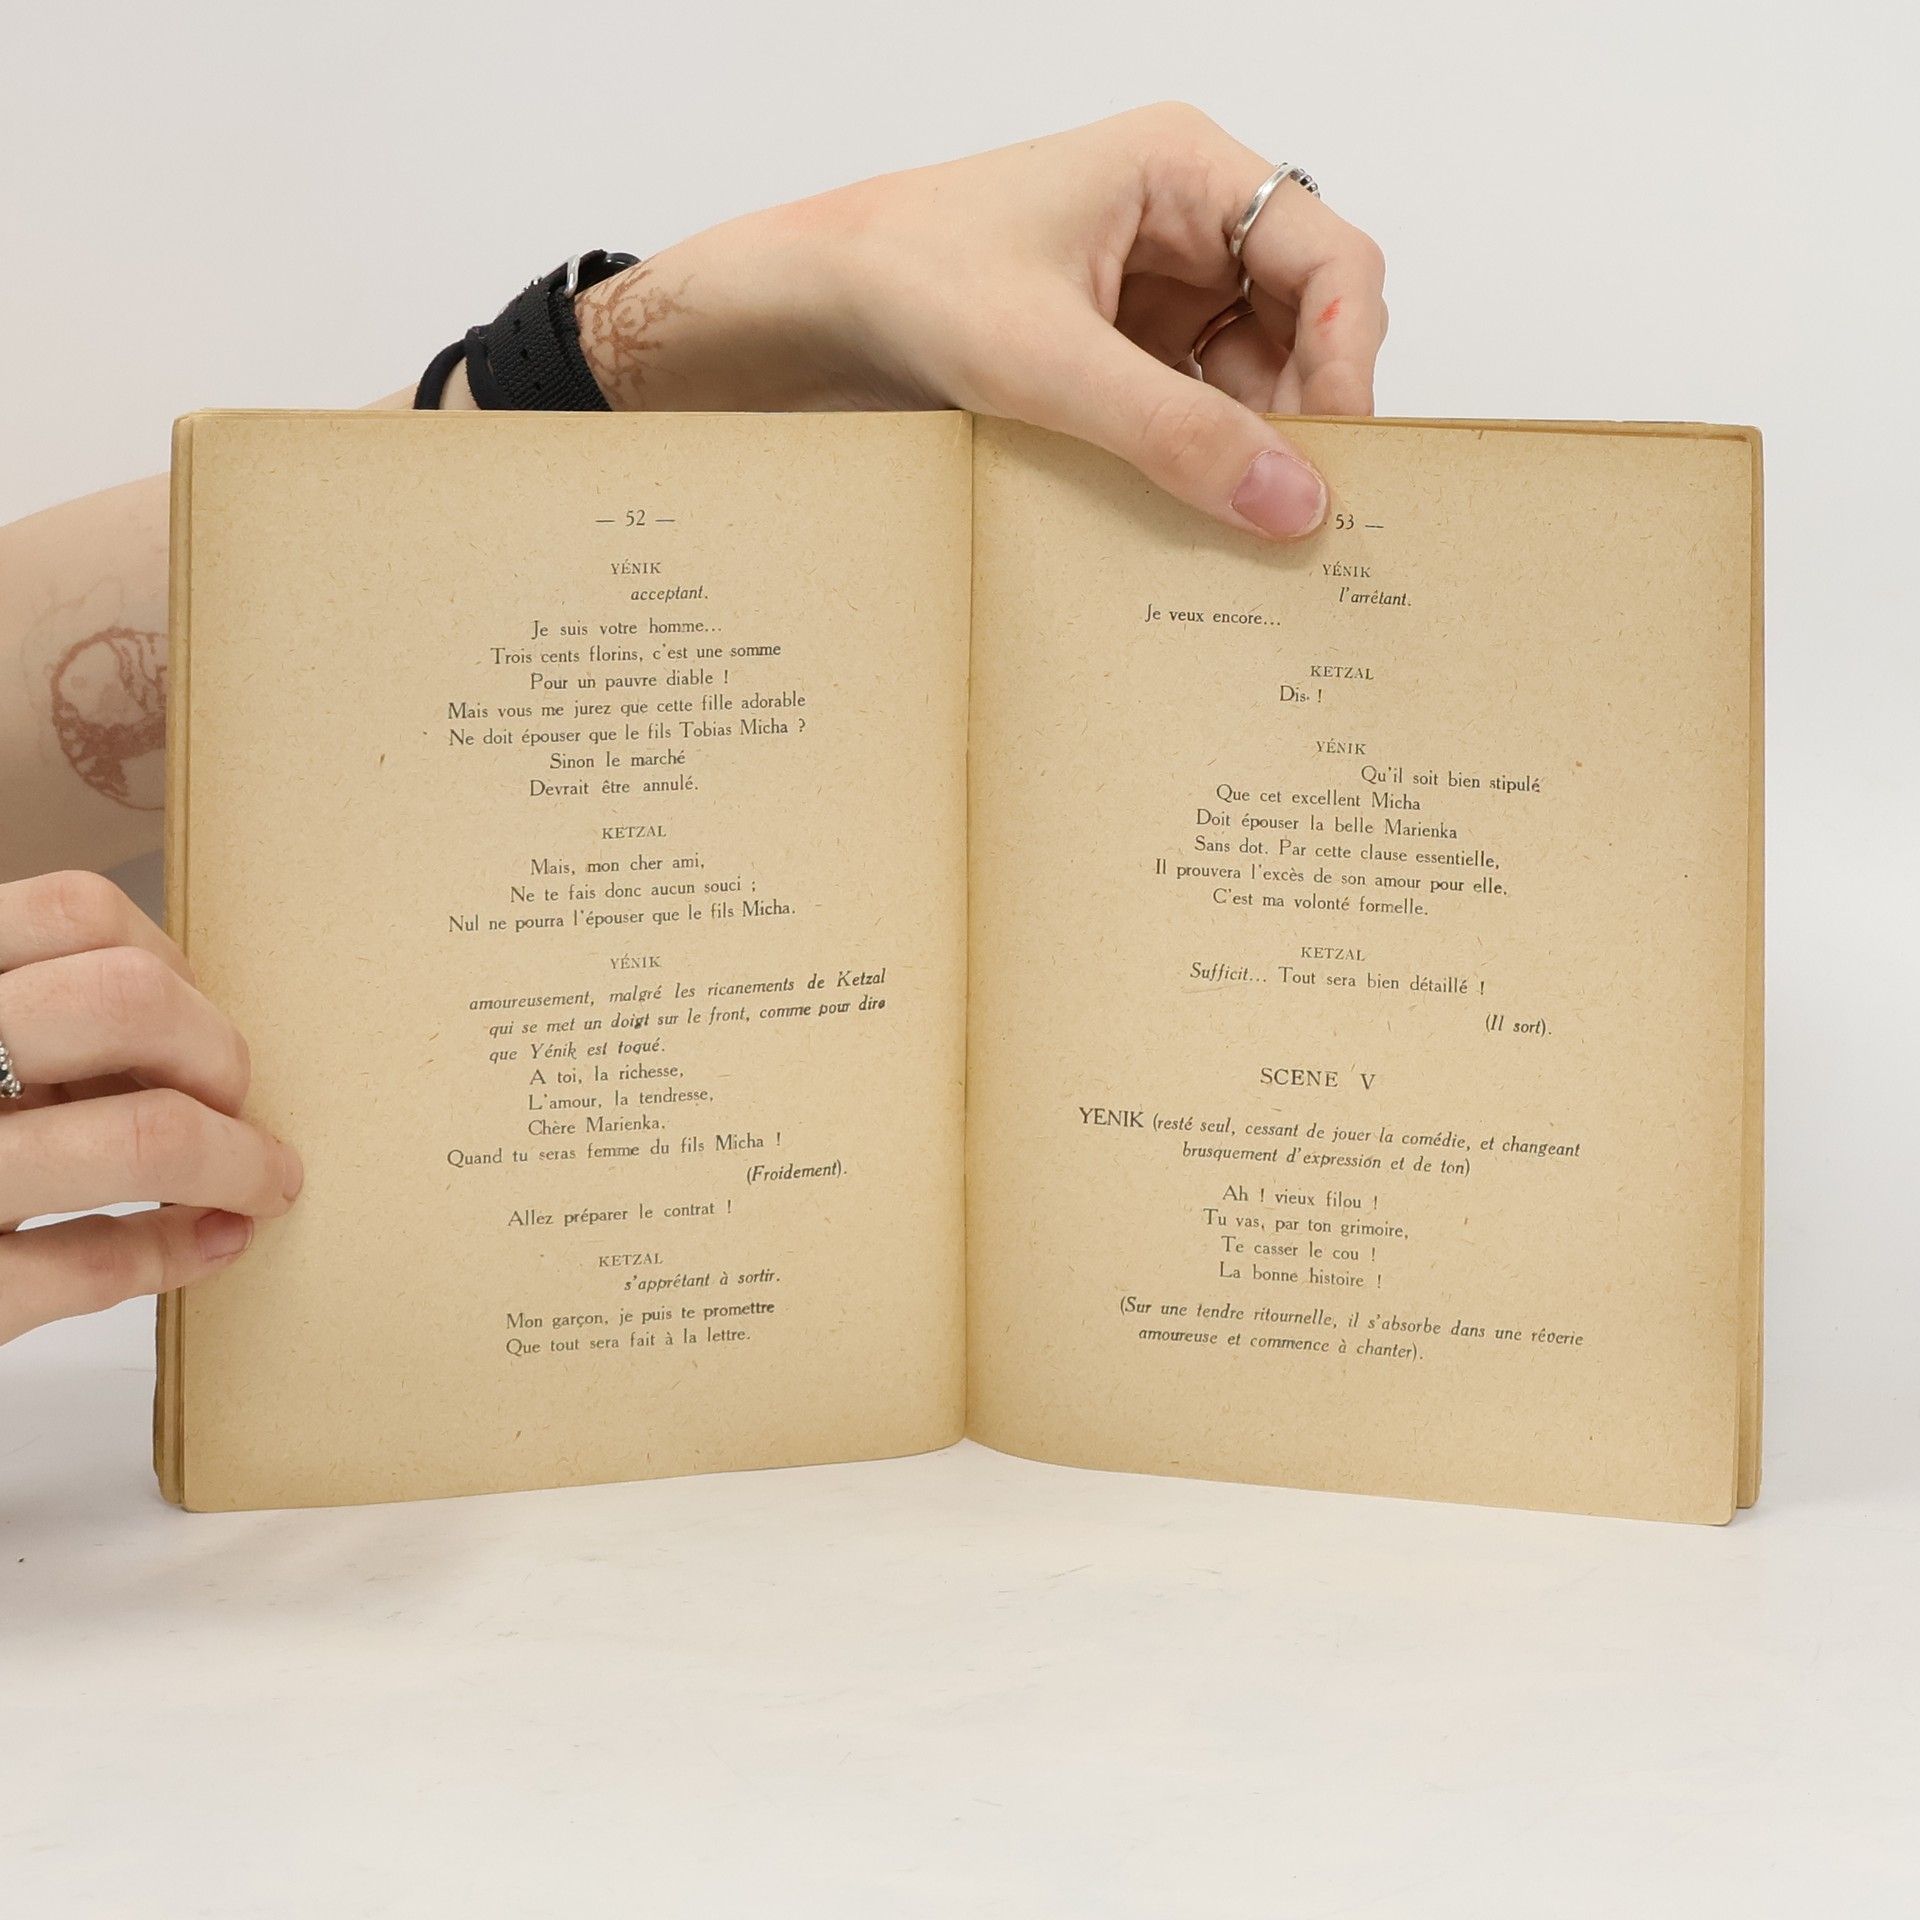 — 52 —
YÉNIK
acceptant.
Je suis votre homme...
Trois cents florins, c'est une somme
Pour un pauvre diable !
Mais vous me jurez que cette fille adorable
Ne doit épouser que le fils Tobias Micha ?
Sinon le marché
Devrait être annulé.
KETZAL
Mais, mon cher ami,
Ne te fais donc aucun souci ;
Nul ne pourra l'épouser que le fils Micha.
YÉNIK
amoureusement, malgré les ricanements de Ketzal
qui se met un doigt sur le front, comme pour dire
que Yénik est toqué.
A toi, la richesse,
L'amour, la tendresse,
Chère Marienka.
Quand tu seras femme du fils Micha !
(Froidement).
Allez préparer le contrat !
KETZAL
s'apprêtant à sortir.
Mon garçon, je puis te promettre
Que tout sera fait à la lettre.
53 —
YÉNIK
l'arrêtant.
Je veux encore...
KETZAL
Dis. !
YÉNIK
Qu'il soit bien stipulé
Que cet excellent Micha
Doit épouser la belle Marienka
Sans dot. Par cette clause essentielle,
Il prouvera l'excès de son amour pour elle.
C'est ma volonté formelle.
KETZAL
Sufficit... Tout sera bien détaillé !
(Il sort).
SCENE V
YENIK (resté seul, cessant de jouer la comédie, et changeant
brusquement d'expression et de ton)
Ah ! vieux filou !
Tu vas, par ton grimoire,
Te casser le cou !
La bonne histoire !
(Sur une tendre ritournelle, il s'absorbe dans une rêverie
amoureuse et commence à chanter).